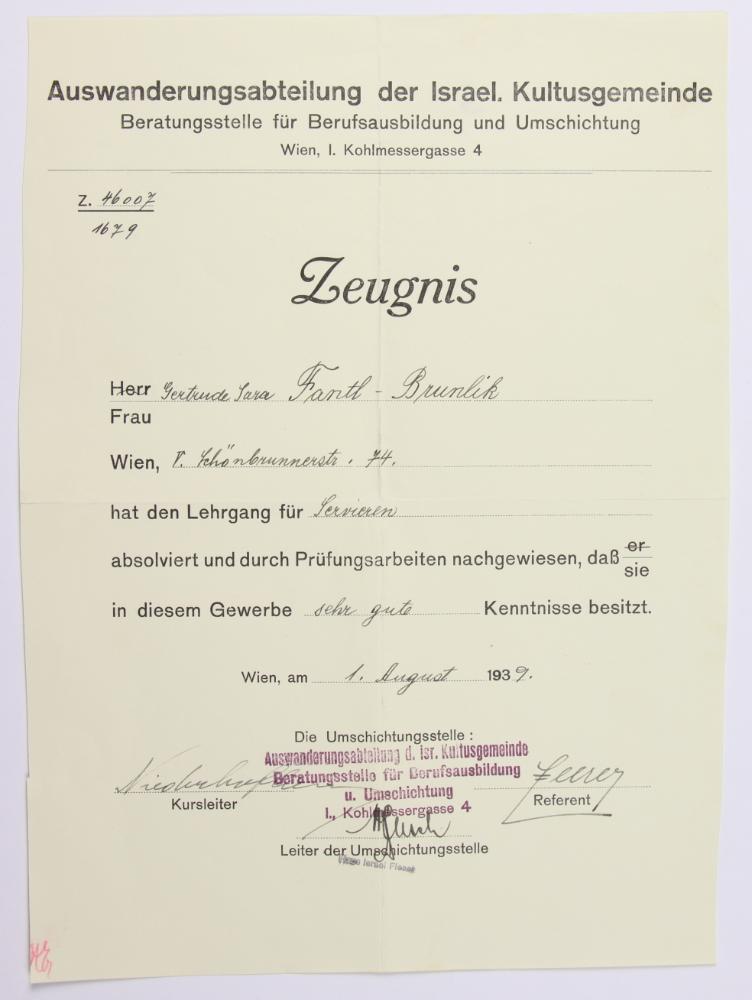 Auswanderungsabteilung der Israel. Kultusgemeinde
Beratungsstelle für Berufsausbildung und Umschichtung
Wien, I. Kohlmessergasse 4
Z. 46007
1679
Zeugnis
Herr Gertrude Sara Fantl - Brunlik
Frau
Wien, V. Schönbrunnerstr. 74.
hat den Lehrgang für Servieren
absolviert und durch Prüfungsarbeiten nachgewiesen, daß er
sie
in diesem Gewerbe sehr gute Kenntnisse besitzt.
Wien, am 1. August 1939.
Die Umschichtungsstelle:
Auswanderungsabteilung d. isr. Kultusgemeinde
Beratungsstelle für Berufsausbildung
u. Umschichtung
I., Kohlmessergasse 4
Kursleiter
Referent
Leiter der Umschichtungsstelle
Israel